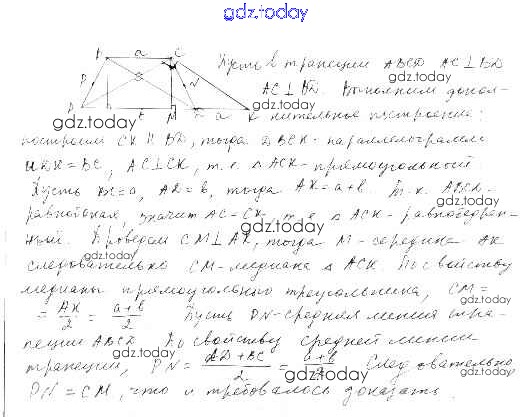 gdz.today
B a C
Пусть в трапеции ABCD AC⊥BD
gdz.today
AC⊥BD. Выполним допол-
A M D a K нительное построение:
gdz.today
построим CK∥BD, тогда DBCK - параллелограмм
и DK=BC, AC⊥CK, т.е. △ACK - прямоугольный.
gdz.today
Пусть BC=a, AD=b, тогда AK=a+b. Т.к. ABCD -
равнобокая, значит AC=CK, т.е. △ACK - равнобедрен-
gdz.today
ный. Проведем CM⊥AK, тогда M - середина AK
следовательно CM - медиана △ACK. По свойству
gdz.today
медианы прямоугольного треугольника, CM=
= AK/2 = a+b/2 Пусть PN - средняя линия тра-
gdz.today
пеции ABCD. По свойству средней линии
трапеции, PN = AD+BC/2 = a+b/2. Следовательно
gdz.today
PN=CM, что и требовалось доказать.
gdz.today